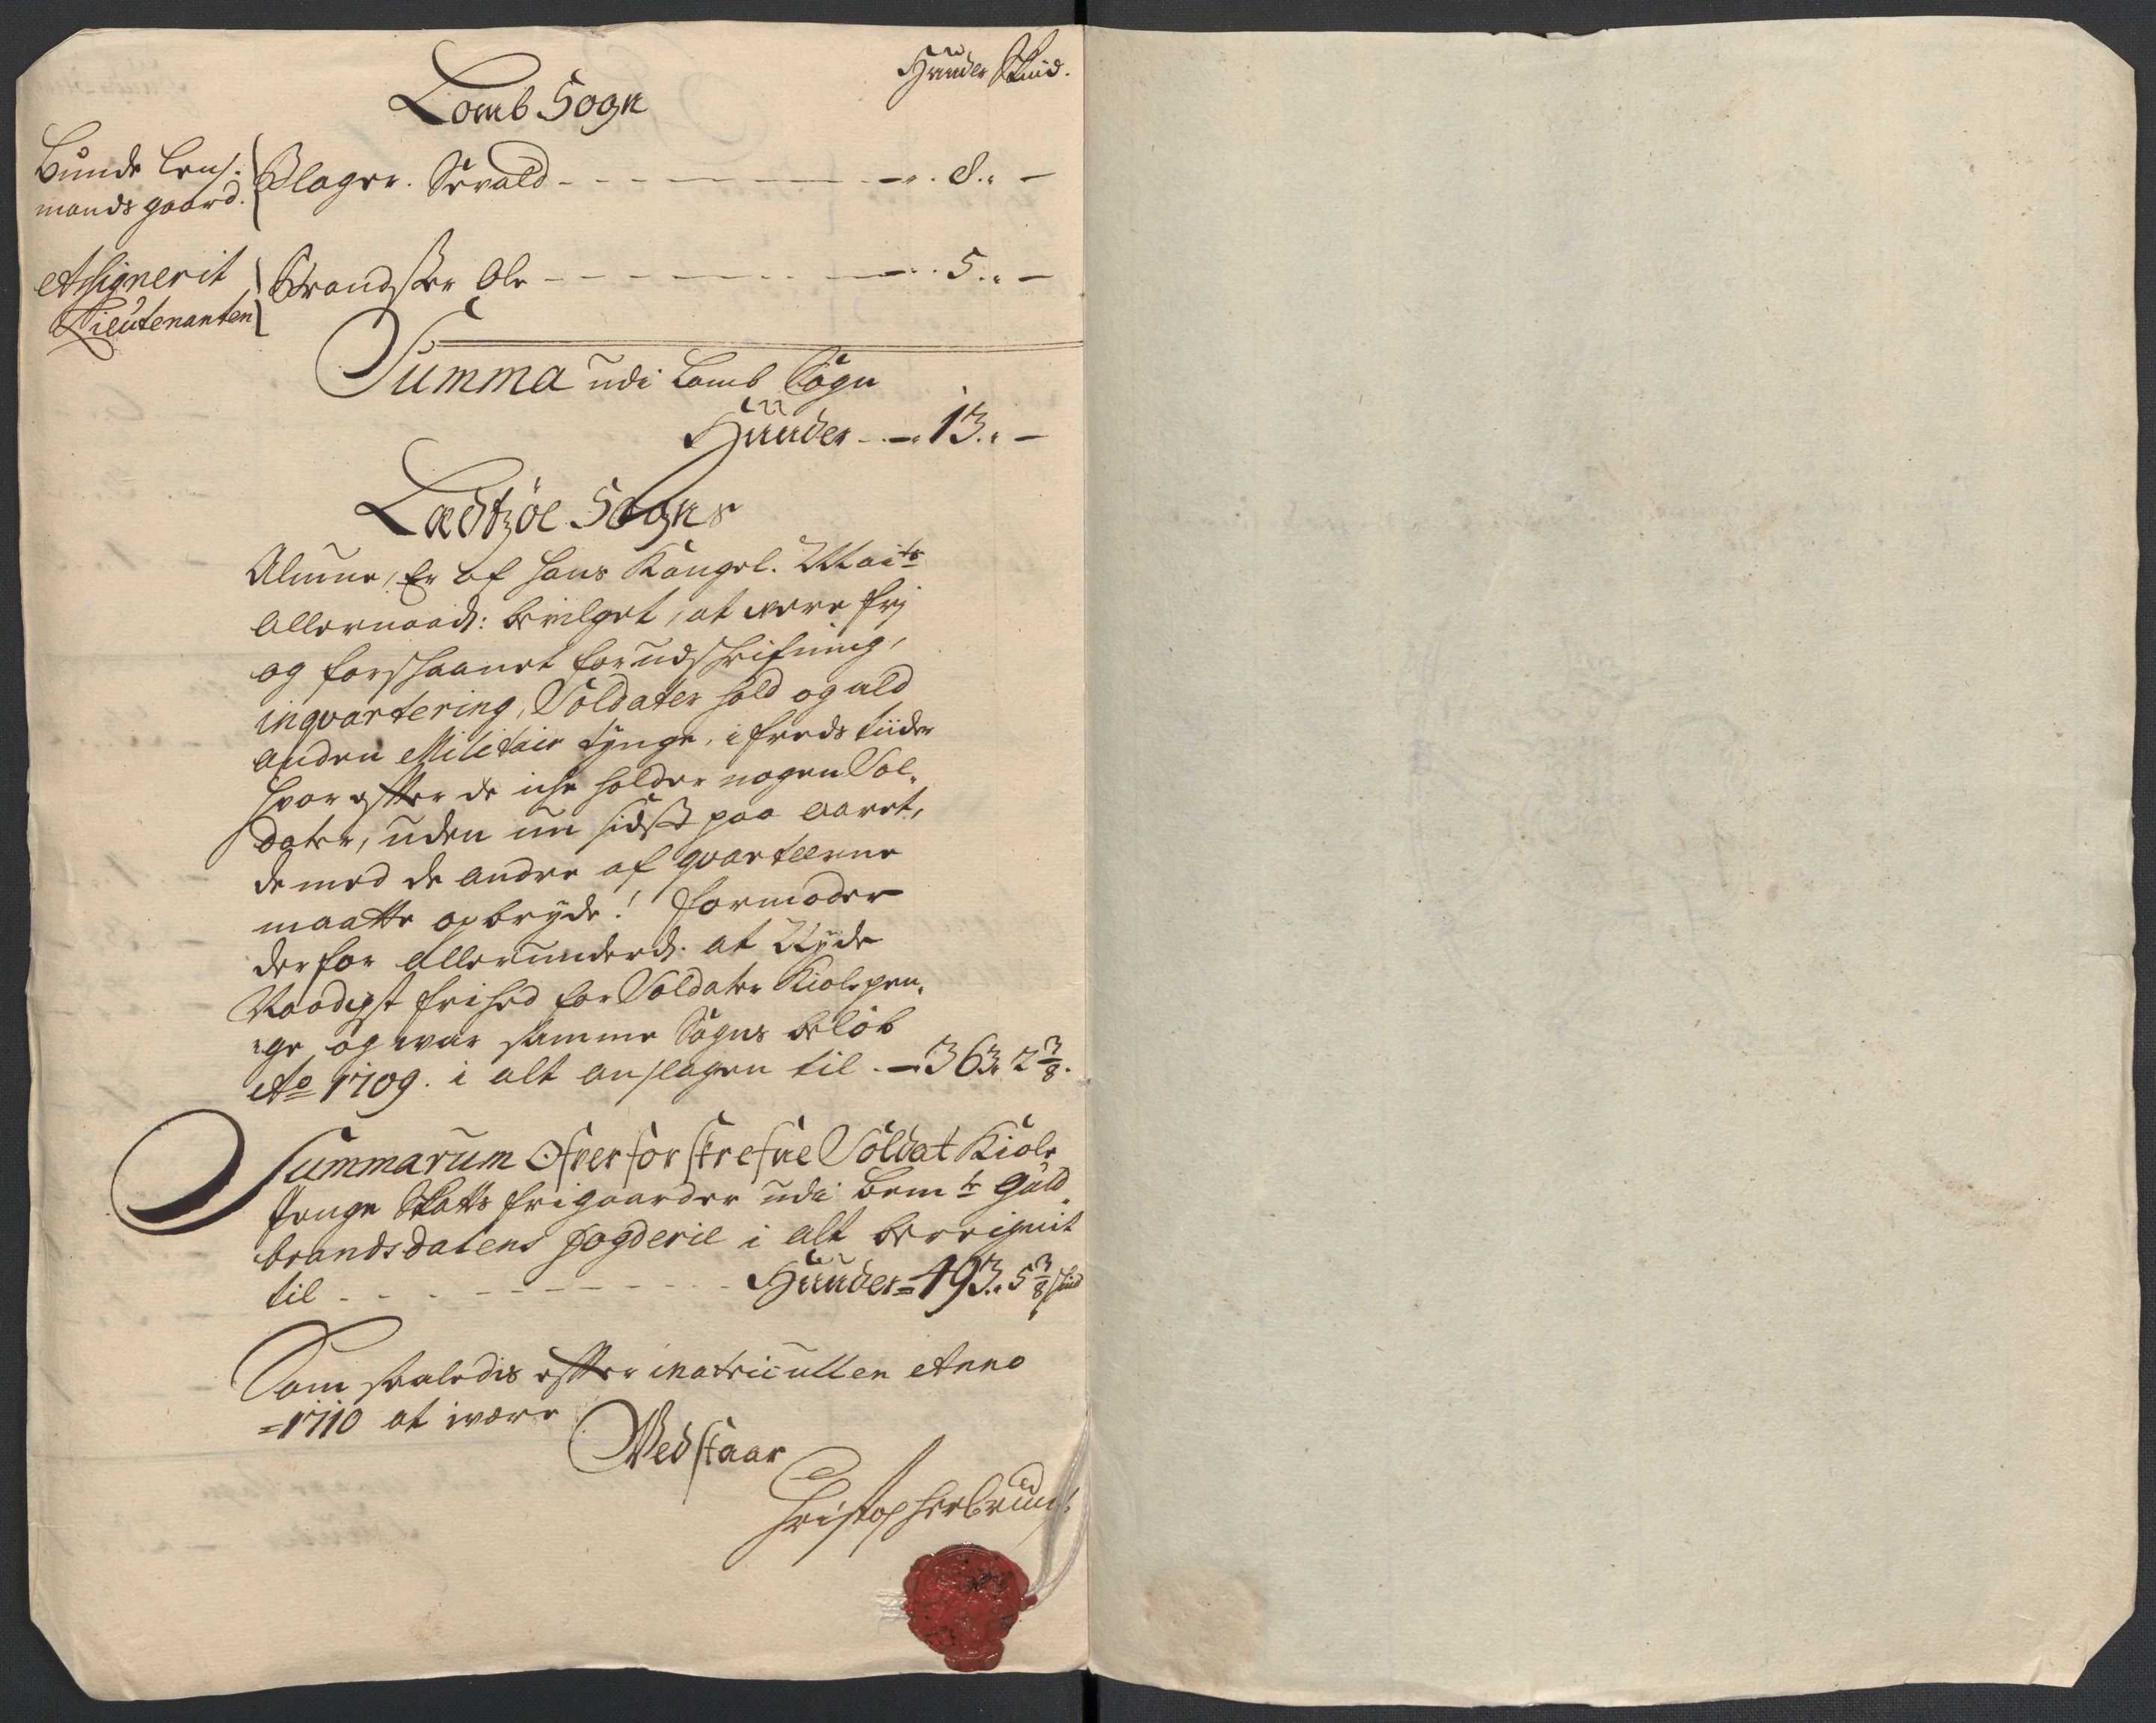 Huuder Skind.
Lomb Sogn
Bunde Lens¬
mands gaard. Blager. Sevald - - - 8 . . -
Assignerit
Lieutenanten Strandsær Ole - - - 5 . . -
Summa udi Lomb Sogn
Huuder - - 13 . . -
Lædtzöe Sogns
Almue, Er af hans Kongel. Maits
Allernaad: bevilget, at være frj
og forskaanet for udskrifning,
inqvartering, Soldater hold og ald
anden Militair tynge, i freds tiider
hvor efter de iche holder nogen Sol¬
dater, uden nu sidst paa aaret,
de med de andre af qvarteerne
maatte opbryde! formoder
derfor allerunderd: at Nyde
Naadigst frihed for Soldater Kiole pen¬
ge, og var samme Sogns beløb
Ao 1709. i alt anslagen til - 363. 2 3/8.
Summarum Ofverforskrefne Soldat Kiole
penge Skatts frigaarder udi bemte Guld¬
brandsdalens fogderie i alt bereignit
til - - - - Huuder = 493. . 5 3/8 skind
Som saaledis efter matriculen Anno
= 1710 at være
Vedstaar
Christopher Bruun